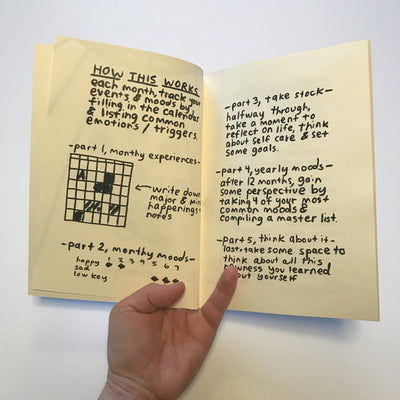 HOW THIS WORKS
each month, track your
events & moods by
filling in the calendar
& listing common
emotions / triggers.
-part 1, monthy experiences-
write down
major & min
happenings
notes
-part 2, monthy moods-
happy 1 2 3 4 5 6 7
sad
low key
-part 3, take stock-
halfway through,
take a moment to
reflect on life, think
about self care & set
some goals.
-part 4, yearly moods-
after 12 months, gain
some perspective by
taking 4 of your most
common moods &
compiling a master list.
-part 5, think about it-
last, take some space to
think about all this
newness you learned
about yourself